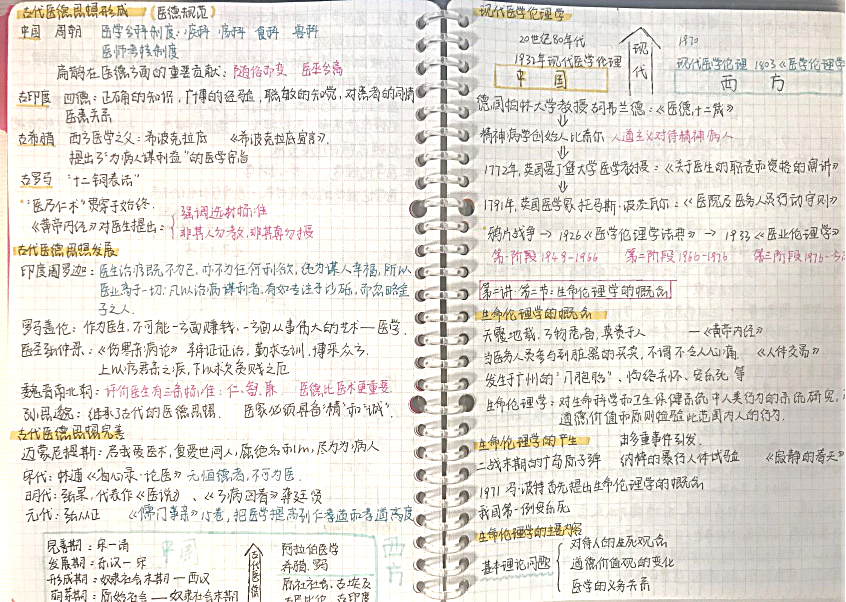 古代医德思想形成 (医德规范)
中国 周朝 医学分科制度:疾科 疡科 食科 兽科
医师考核制度
扁鹊在医德方面的重要贡献:随俗而变 医巫分离
古印度 四德:正确的知识,广博的经验,聪敏的知觉,对患者的同情
医患关系
古希腊 西方医学之父:希波克拉底 《希波克拉底宣言》.
提出了"为病人谋利益"的医学宗旨
古罗马 "十二铜表法"
"医乃仁术"贯穿于始终.
《黄帝内经》对医生提出:
强调选材标准
非其人勿教,非其真勿授
古代医德思想发展
印度阇罗迦:医生治病既不为己,亦不为任何利欲,纯为谋人幸福,所以
医业高于一切.凡以治病谋利者,有如专注于沙砾,而忽略金
子之人.
罗马盖伦:作为医生,不可能一方面赚钱,一方面从事伟大的艺术—医学.
医圣张仲景:《伤寒杂病论》 辩证论治,勤求古训,博采众方.
上以疗君亲之疾,下以救贫贱之厄
魏晋南北朝:评价医生有三条标准:仁、智、廉 医德比医术更重要.
孙思邈:继承了古代的医德思想. 医家必须具备"精"而"诚".
古代医德思想完善
迈蒙尼提斯:启我爱医术,复爱世间人,愿绝名利心,尽力为病人
宋代:林逋《省心录·论医》无恒德者,不可为医.
明代:张杲,代表作《医说》、《万病回春》龚廷贤
元代:张从正 《儒门事亲》15卷,把医学提高到仁孝道而孝道高度
完善期:宋—清
发展期:东汉—宋
形成期:奴隶社会末期—西汉
萌芽期:原始社会—奴隶社会末期
中国
古代医德
阿拉伯医学
希腊.罗马
原社社会、古埃及
古巴比伦、古印度
西方
现代医学伦理学
20世纪80年代
1932年现代医学伦理
中国
现代
1970
现代医学伦理 1803《医学伦理学
西方
德国柏林大学教授胡弗兰德:《医德十二箴》
精神病学创始人比奈尔 人道主义对待精神病人
1772年,英国爱丁堡大学医学教授:《关于医生的职责和资格的演讲》
1791年,英国医学家托马斯·波茨瓦尔:《医院及医务人员行动守则》
鸦片战争→1926《医学伦理学法典》→1933《医业伦理学》
第一阶段 1949-1966 第二阶段 1966-1976 第三阶段1976-
第二讲.第二节:生命伦理学的概念
生命伦理学的概念
天覆地载,万物悉备,莫贵于人 —《黄帝内经》
当医务人员参与到脏器的买卖,不谓不令人心痛 《人体交易》
发生于广州的"门胞胎"、临终关怀、安乐死 等
生命伦理学:对生命科学和卫生保健系统中人类行为的系统研究,
道德价值和原则检验此范围内人的行为.
生命伦理学的产生 由多重事件引发.
二战末期的广岛原子弹 纳粹的暴行人体试验 《寂静的春天》
1971 马·波特首先提出生命伦理学的概念
我国第一例安乐死
生命伦理学的主要内容
基本理论问题
对待人的生死观念
道德价值观的变化
医学的义务关系